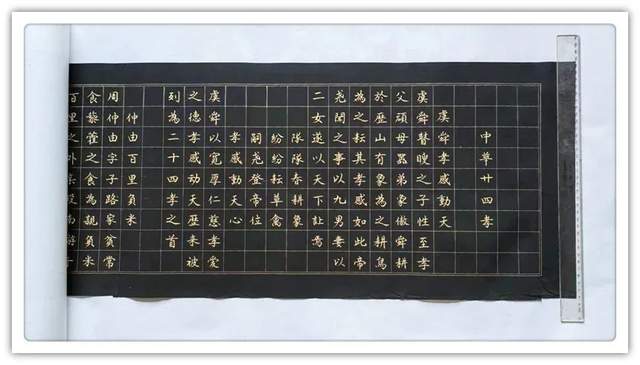 中華廿四孝
虞舜孝感動天
虞舜瞽瞍之子性至孝
父頑母嚚弟象傲舜耕
於歷山有象為之耕鳥
為之耘其孝感如此帝
堯聞之事以九男妻以
二女遂以天下讓焉
隊隊春耕象
紛紛耘草禽
嗣堯登帝位
孝感動天心
虞舜以寬厚仁慈孝愛
之德孝感動天歷來被
列為二十四孝之首
仲由百里負米
周仲由字子路家貧常
食藜藿之食為親負米
百里之外親歿南遊